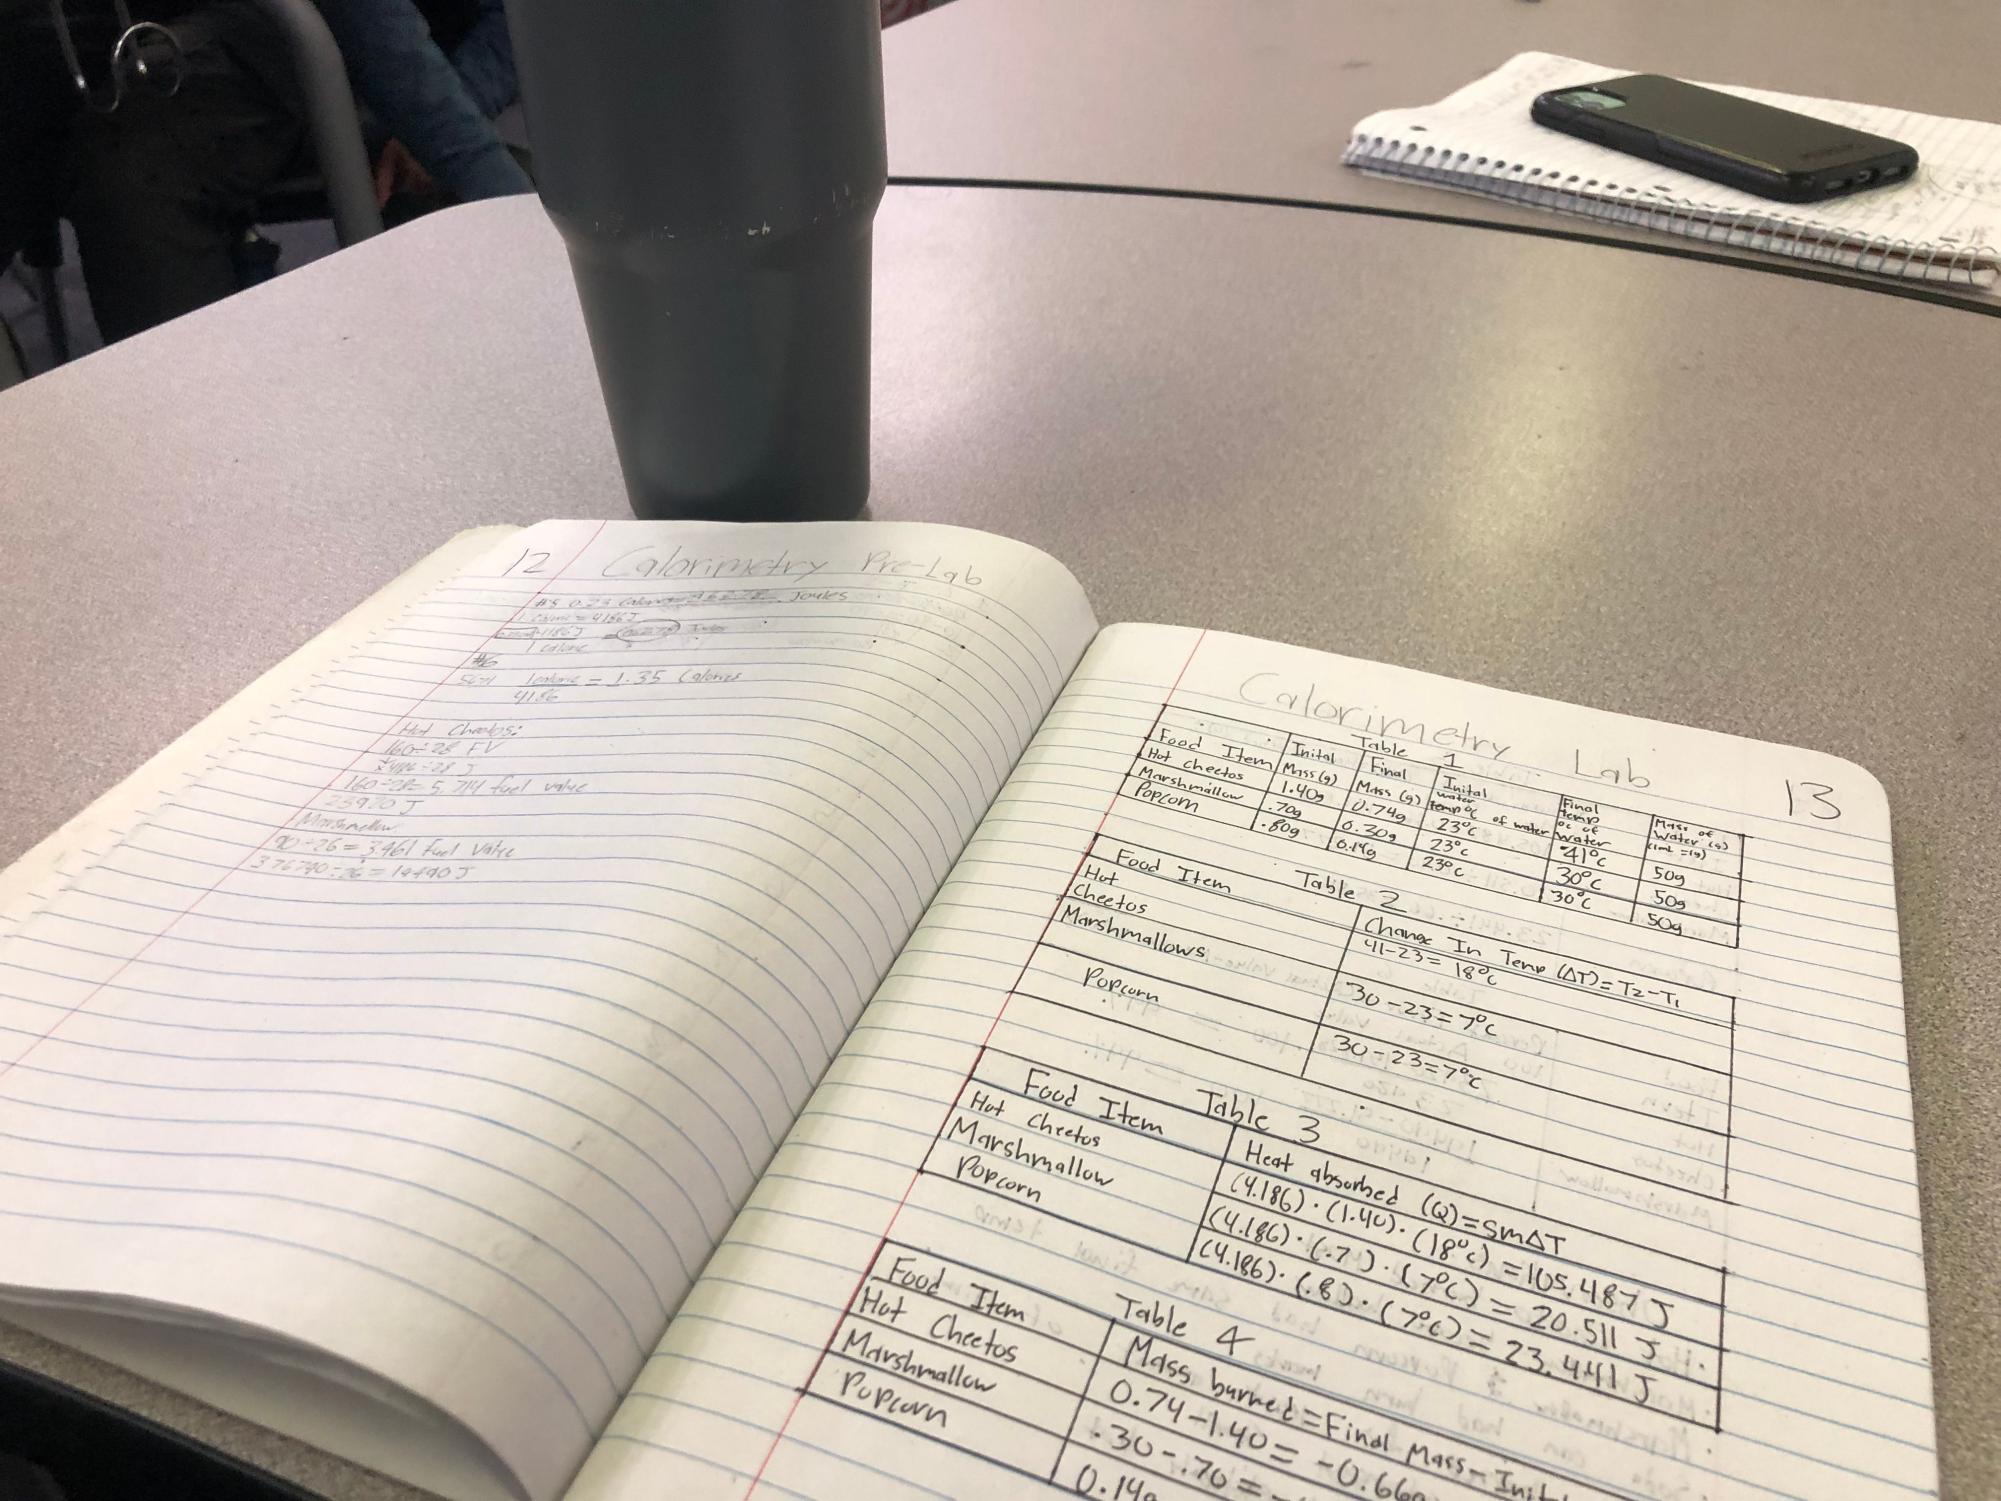 12 Calorimetry Pre-Lab
#5 0.23 Joules
1 Calorie = 4186J
1 calorie
#6
1calorie = 1.35 Calories
4186
Hot Cheetos:
160÷28 FV
160÷28= 5.714 fuel value
23920 J
Marshmellow
90÷26= 3.461 fuel value
376740÷26 = 14490 J
Calorimetry Lab 13
Table 1
Food Item Inital Mass (g) Final Mass (g) Inital water temp °C of water Final temp °C of water Mass of water (g) (1mL = 1g)
Hot cheetos 1.40g 0.74g 23°C 41°C 50g
Marshmallow .70g 0.30g 23°C 30°C 50g
Popcorn .80g 0.14g 23°C 30°C 50g
Table 2
Food Item Change In Temp (ΔT)=T2-T1
Hot Cheetos 41-23= 18°C
Marshmallows 30-23=7°C
Popcorn 30-23=7°C
Table 3
Food Item Heat absorbed (Q)=SmΔT
Hot cheetos (4.186)·(1.40)·(18°C)=105.487 J
Marshmallow (4.186)·(.7)·(7°C)= 20.511 J
Popcorn (4.186)·(.8)·(7°C)= 23.441 J
Table 4
Food Item Mass burned=Final Mass-Init
Hot Cheetos 0.74-1.40= -0.66g
Marshmallow .30-.70= -
Popcorn 0.14g